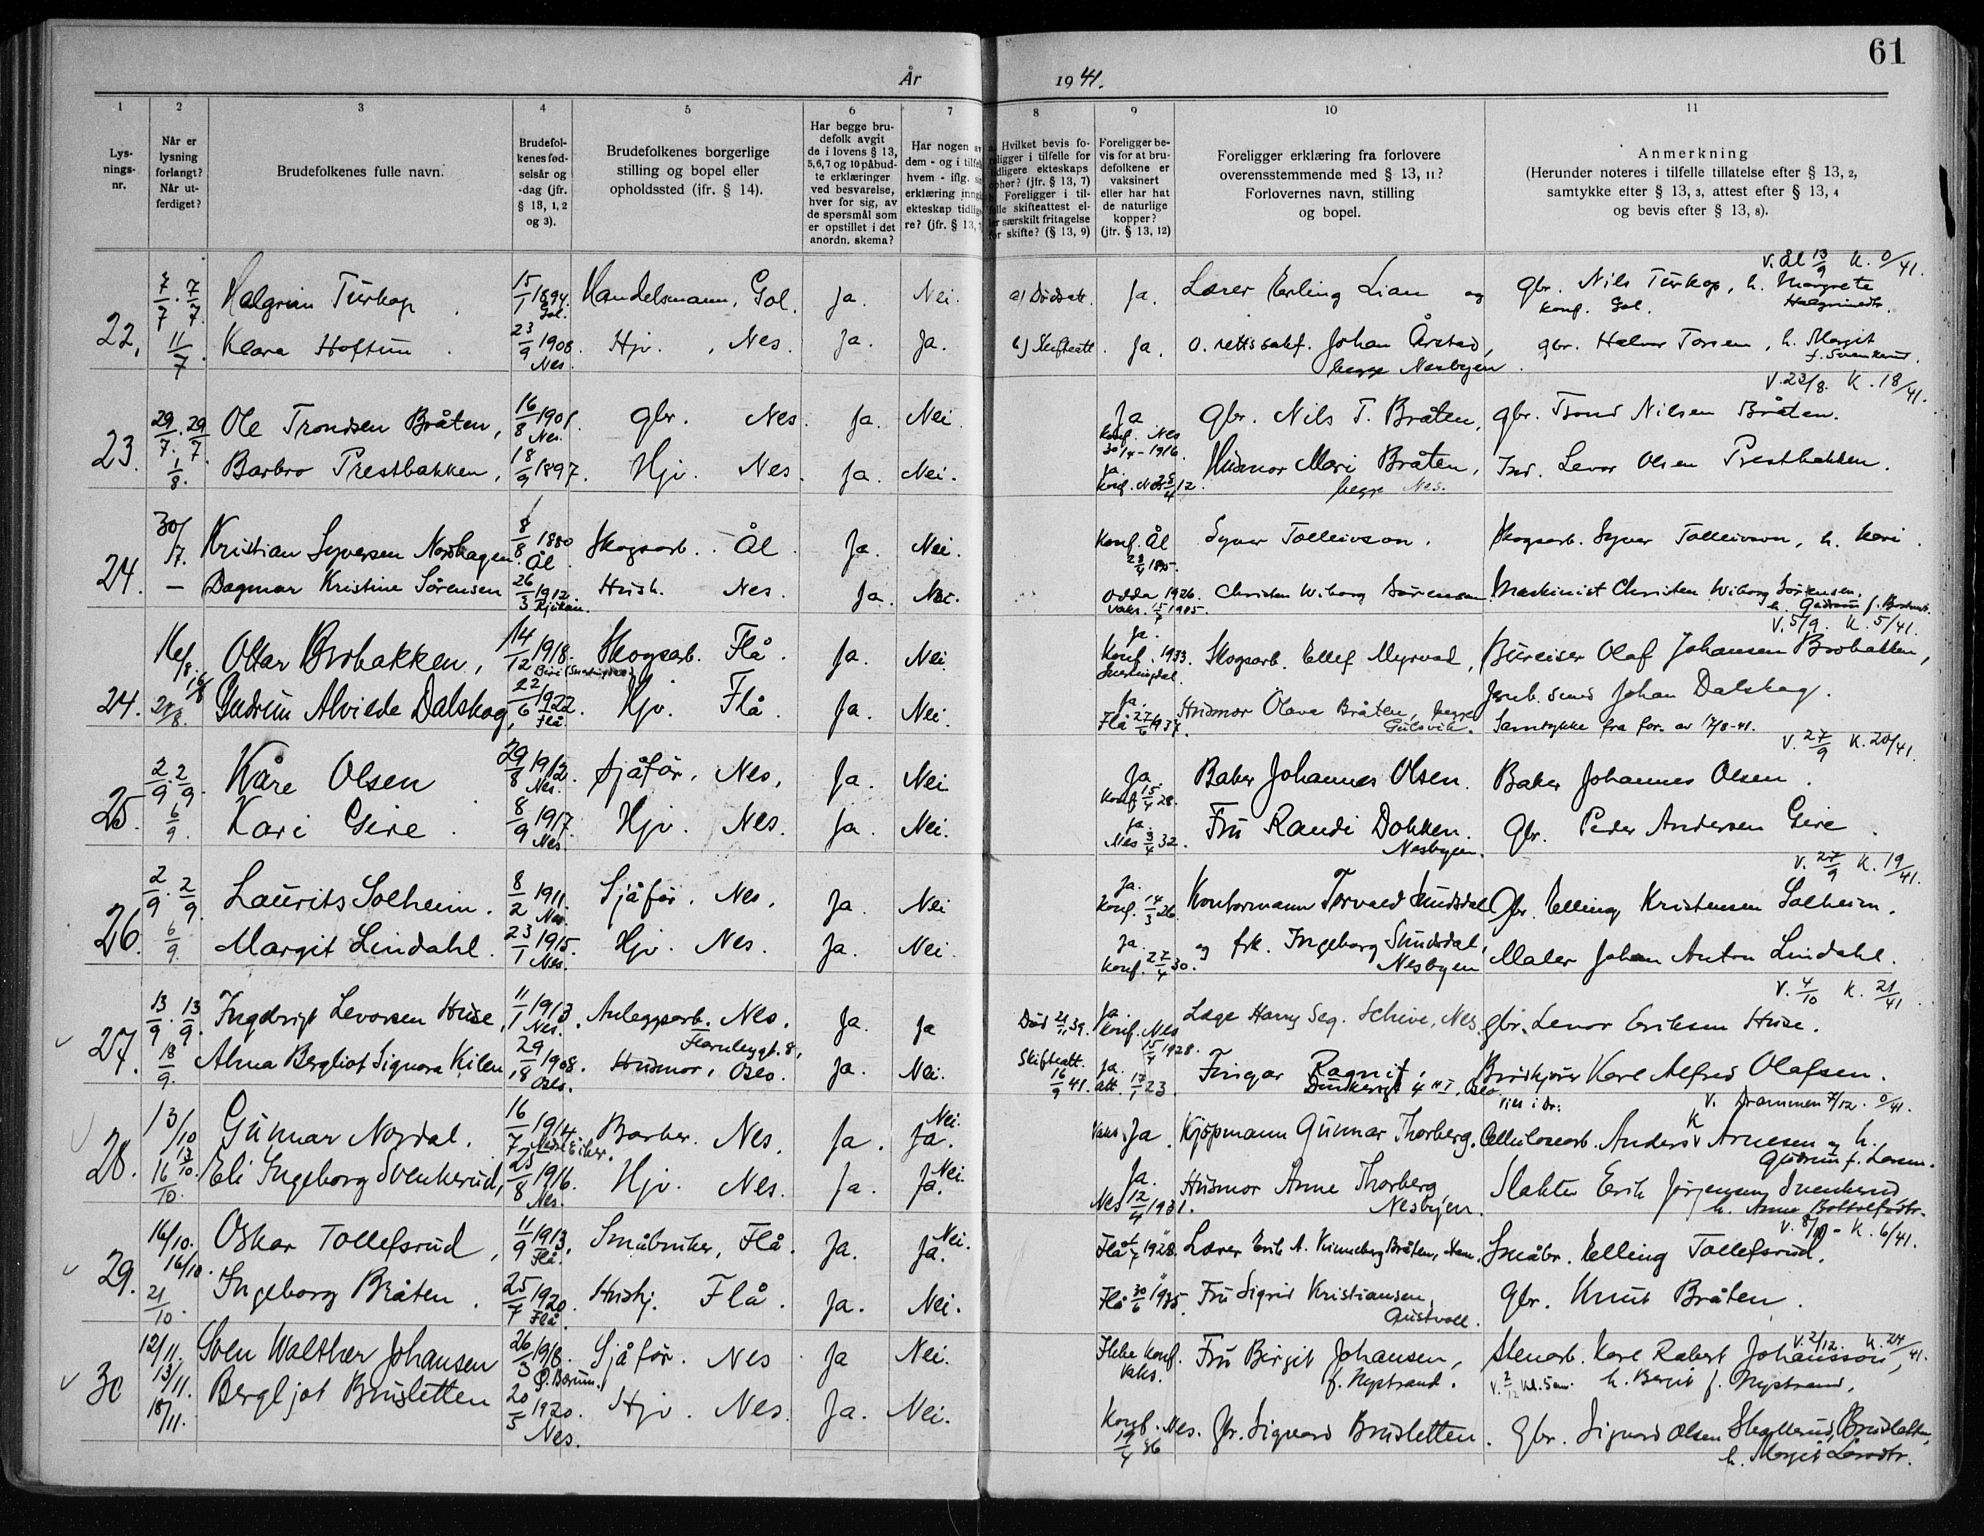 61
År 1941.
1 2 3 4 5 6 7 8 9 10 11
Lys-
nings-
nr.
Når er
lysning
forlangt?
Når ut-
ferdiget?
Brudefolkenes fulle navn.
Brudefol-
kenes fød-
selsår og
-dag (jfr.
§ 13, 1, 2
og 3).
Brudefolkenes borgerlige
stilling og bopel eller
opholdssted (jfr. § 14).
Har begge bru-
defolk avgit
de i lovens § 13,
5, 6, 7 og 10 påbud-
te erklæringer
ved besvarelse,
hver for sig, av
de spørsmål som
er opstillet i det
anordn. skema?
Har nogen av
dem - og i tilfelle
hvem - iflg. sin
erklæring inngått
ekteskap tidlige-
re? (jfr. § 13,
Hvilket bevis fo-
religger i tilfelle for
tidligere ekteskaps
ophør? (jfr. § 13, 7)
Foreligger i til-
felle skifteattest el-
ler særskilt fritagelse
for skifte? (§ 13, 9)
Foreligger be-
vis for at bru-
defolkene er
vaksinert
eller har hat
de naturlige
kopper?
(jfr. § 13, 12)
Foreligger erklæring fra forlovere
overensstemmende med § 13, 11?
Forlovernes navn, stilling
og bopel.
Anmerkning
(Herunder noteres i tilfelle tillatelse efter § 13, 2,
samtykke efter § 13, 3, attest efter § 13, 4
og bevis efter § 13, 8).
V. Ål 13/9 K. 0/41.
22. 7/7. 7/7. Halgrim Turkop 15/1 1894. Gol. Handelsmann, Gol. Ja. Nei. a) Dødsatt. Ja. Lærer Erling Lian og gbr. Nils Turkop, h. Margrete Halgrimsdtr. konf. Gol.
11/7 Klara Hoftun 23/9 1908. Nes. Hjv., Nes. Ja. Ja. b) Skifteatt. Ja. o. rettssakf. Johan Årstad, begge Nesbyen gbr. Halvor Torsen, h. Margit f. Svenkerud.
V. 23/8. K. 18/41.
23. 29/7. 29/7. Ole Trondsen Bråten, 16/8 1901. Nes. gbr. Nes. Ja. Nei. Ja Konf. Nes 30/4-1916. gbr. Nils T. Bråten, gbr. Trond Nilsen Bråten.
1/8. Barbro Prestbakken, 18/9 1897. Hjv. Nes. Ja. Nei. Ja Konf. Nes 28/4 12. Husmor Mari Bråten, begge Nes. Levor Olsen Prestbakken.
24. 30/7. Kristian Syversen Nordhagen. 8/8 1880 Ål. Skogsarb. Ål. Ja. Nei. Konf. Ål Syver Tolleivson. Skogsarb. Syver Tolleivson, h. Kari.
— Dagmar Kristine Sörensen 26/3 1912. Rjukan. Hush. Nes. Ja. Nei. Odda 1926. Vaks. Christen Wiborg Sörensen Maskinist Christen Wiborg Sörensen,
V. 5/9. K. 5/41.
24. 16/8. 16/8 Ottar Brobakken, 14/12 1918. Skogsarb. Flå. Ja. Nei. Ja. Konf. 1933. Snertingdal. Skogsarb. Ellef Myrvad, Bureiser Olaf Johansen Brobakken,
Gudrun Alvilde Dalskog, 22/6 1922. Flå. Hjv. Flå. Ja. Nei. Ja. Flå 27/6 1937. Husmor Olava Bråten, begge Gulsvik. Johan Dalskog. Samtykke fra for. av 17/8-41.
V. 27/9 K. 20/41.
25. 2/9. 2/9. Kåre Olsen 29/8 1912. Nes. Sjåfør, Nes, Ja. Nei Ja Konf 15/4 28. Baker Johannes Olsen. Baker Johannes Olsen.
6/9. Kari Geire. 8/9 1917. Nes. Hjv. Nes. Ja. Nei. Ja. Nes 3/4 32. Fru Randi Dokken. Nesbyen. Gbr. Peder Andersen Geire.
V. 27/9 K. 19/41.
26. 2/9. 2/9. Laurits Solheim. 8/2 1911. Nes. Sjåfør, Nes, Ja. Nei Ja. Konf. 14/3 26. Kontormann Torvald Sundsdal Gbr. Elling Kristensen Solheim.
6/9. Margit Lindahl. 23/1 1915. Nes. Hjv. Nes. Ja. Nei. Ja. Konf. 27/4 30. og frk. Ingeborg Sundsdal, Nesbyen Maler Johan Anton Lindahl.
V. 4/10 K. 21/41.
27. 13/9. 13/9. Ingebrigt Levorsen Huse, 11/1 1913. Nes. Anleggsarb. Nes. Ja. Ja Død 21/1 39. Ja. Konf. Nes 15/4 1928. Læge Harry Seg. Schive, Nes. gbr. Levor Eriksen Huse.
18/9. Alma Bergliot Signora Kilen 29/8 1908. Oslo. Husmor, Oslo. Ja. Nei. Skifteatt. 16/9 41. Ja. att. 17/1 23. Fingar Ragnif, Brødkjører Karl Alfred Olafsen.
V. Drammen 7/12. 0/41.
28. 13/10 Gunnar Nordal. 16/7 1914. Nedre Eiker. Barber. Nes. Ja. Nei. Ja. Vaks. Ja. Kjøpmann Gunnar Thorberg. Cellulosearb. Anders K Arnesen og h. Gudrun f. Larsen.
16/10. Eli Ingeborg Svenkerud, 25/8 1916. Nes. Hjv. Nes. Ja. Nei. Ja. Ja. Nes 12/4 1931. Husmor Anne Thorberg Nesbyen. Slakter Erik Jørgensen Svenkerud h. Anne Bottolfsdtr.
K. 6/41.
29. 16/10. 16/10. Oskar Tollefsrud, 11/9 1913. Flå. Småbruker, Flå. Ja. Nei. Ja. Flå 1928. Lærer Erik A. Kinneberg Bråten, Småbr. Elling Tollefsrud.
21/10. Ingeborg Bråten. 25/7 1920. Flå. Hushj. Flå. Ja. Nei. Flå 30/6 1935. Fru Sigrid Kristiansen, Gustvoll. Gbr. Knut Bråten.
V. 2/12. K. 24/41.
30 12/11. 13/11. Sven Walther Johansen 26/3 1918. Ø. Bærum. Sjåfør. Nes Ja Nei. Ikke Konf. Vaks. Fru Birgit Johansen, f. Nystrand. Stenarb. Karl Robert Johansson, h. Bergit f. Nystrand,
18/11. Bergljot Brusletten 20/5 1920. Nes. Hjv. Nes. Ja. Nei. Konf. Nes. 19/4 36 Gbr. Sigvard Brusletten. Gbr. Sigvard Olsen Brusletten, h. Margit